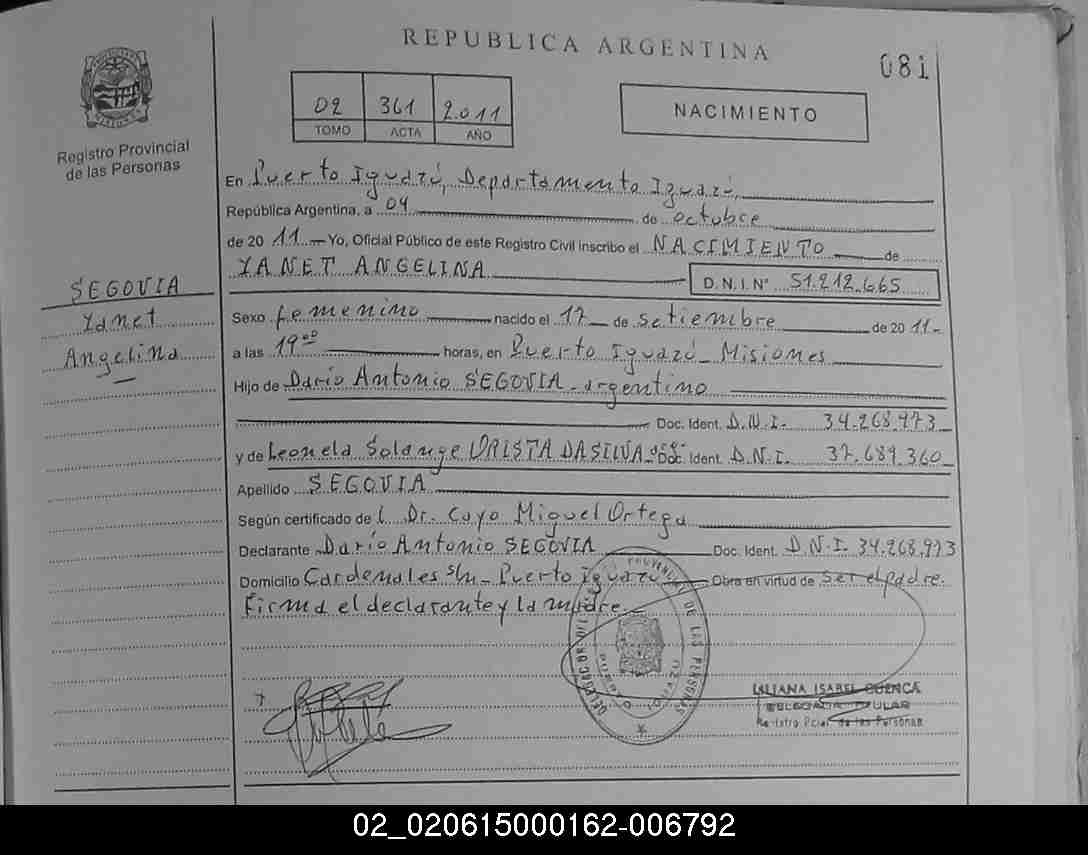 REPUBLICA ARGENTINA
081
02 361 2.011
TOMO ACTA AÑO
NACIMIENTO
Registro Provincial
de las Personas
En Puerto Iguazú, Departamento Iguazú,
República Argentina, a 04 de octubre
de 20 11 Yo, Oficial Público de este Registro Civil inscribo el NACIMIENTO de
YANET ANGELINA
D.N.I. Nº 51.212.665
SEGOVIA
Yanet
Angelina
Sexo femenino nacido el 17 de setiembre de 20 11-
a las 19 00 horas, en Puerto Iguazú_ Misiones
Hijo de Darío Antonio SEGOVIA - argentino
Doc. Ident. D.N.I. 34.268.973
y de Leonela Solange URISTA DASILVA Doc. Ident. D.N.I. 37.689.360
Apellido SEGOVIA
Según certificado de l Dr. Cayo Miguel Ortega
Declarante Darío Antonio SEGOVIA Doc. Ident. D.N.I. 34.268.973
Domicilio Cardenales s/n_ Puerto Iguazú Obra en virtud de ser el padre.
Firma el declarante y la madre
DE LAS PERSONAS
LILIANA ISABEL CUENCA
DELEGADA TITULAR
Registro Pcial. de las Personas
02_020615000162-006792